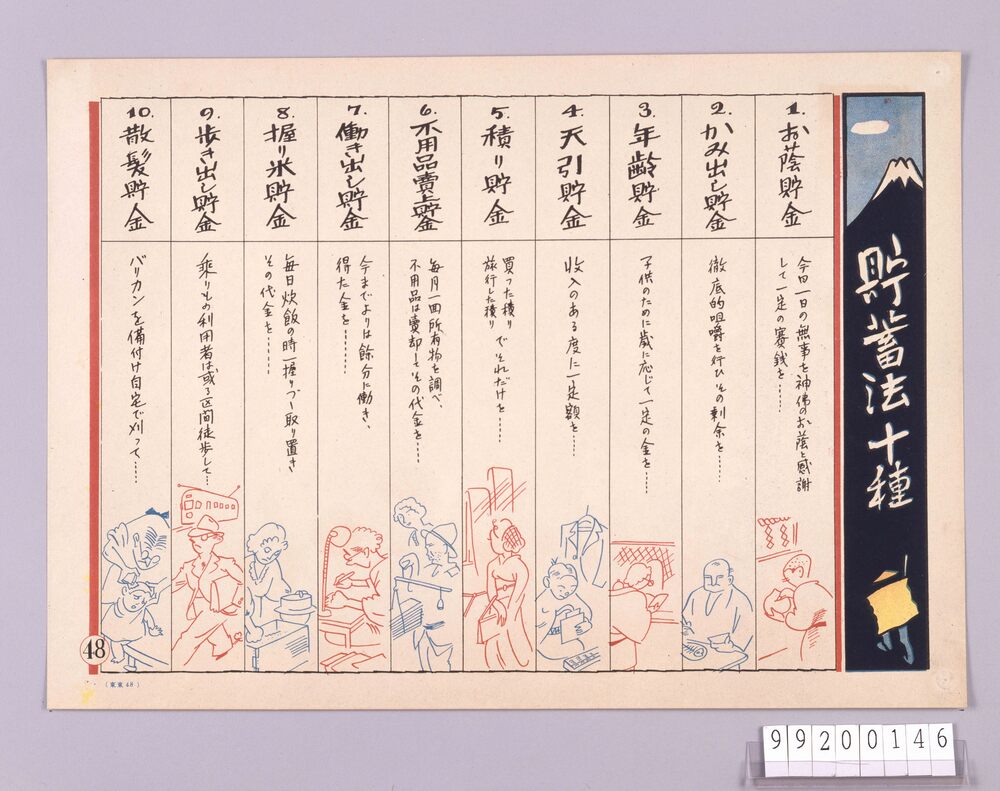 貯蓄法十種
1. お蔭貯金
今日一日の無事を神佛のお蔭と感謝
して一定の賽銭を……
2. かみ出し貯金
徹底的咀嚼を行ひその剰余を……
3. 年齢貯金
子供のために歳に応じて一定の金を……
4. 天引貯金
收入のある度に一定額を……
5. 積り貯金
買った積り
旅行した積り
でそれだけを……
6. 不用品賣上貯金
毎月一回所有物を調べ、
不用品は賣却してその代金を……
7. 働き出し貯金
今までよりは餘分に働き、
得た金を……
8. 握り米貯金
毎日炊飯の時一握りづゝ取り置き
その代金を……
9. 歩き出し貯金
乘りもの利用者は或る区間徒歩して…
10. 散髪貯金
バリカンを備付け自宅で刈って……
48
(東東48)
99200146